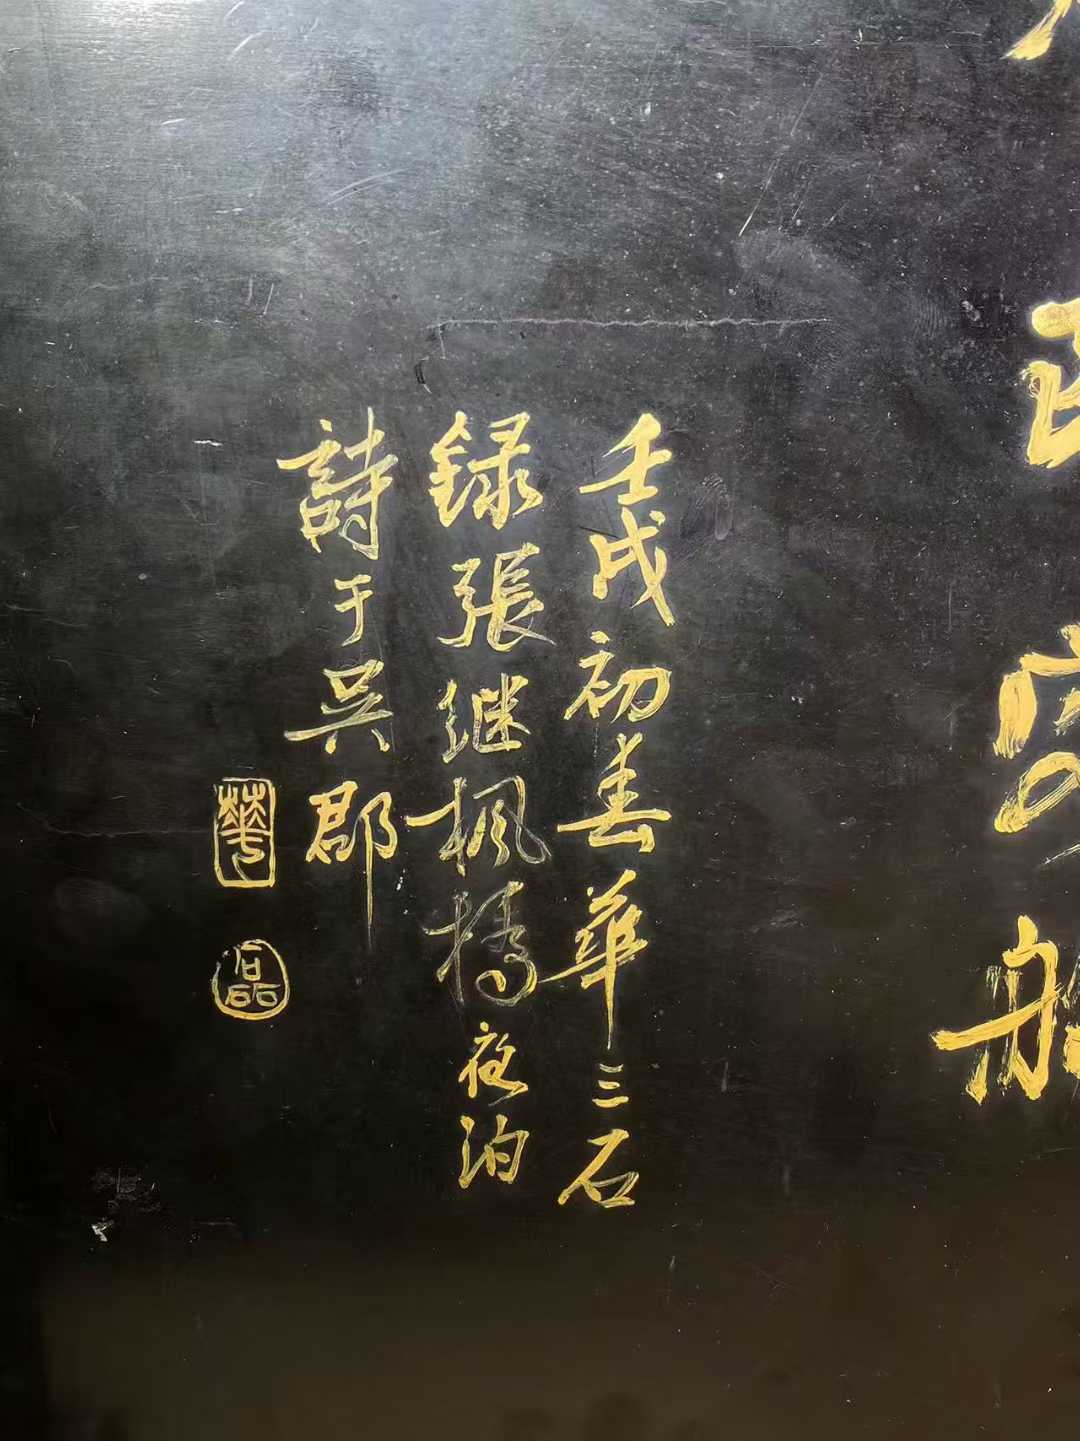 船
壬戌初春華三石
録張継楓橋夜泊
詩于吴郡
華
磊